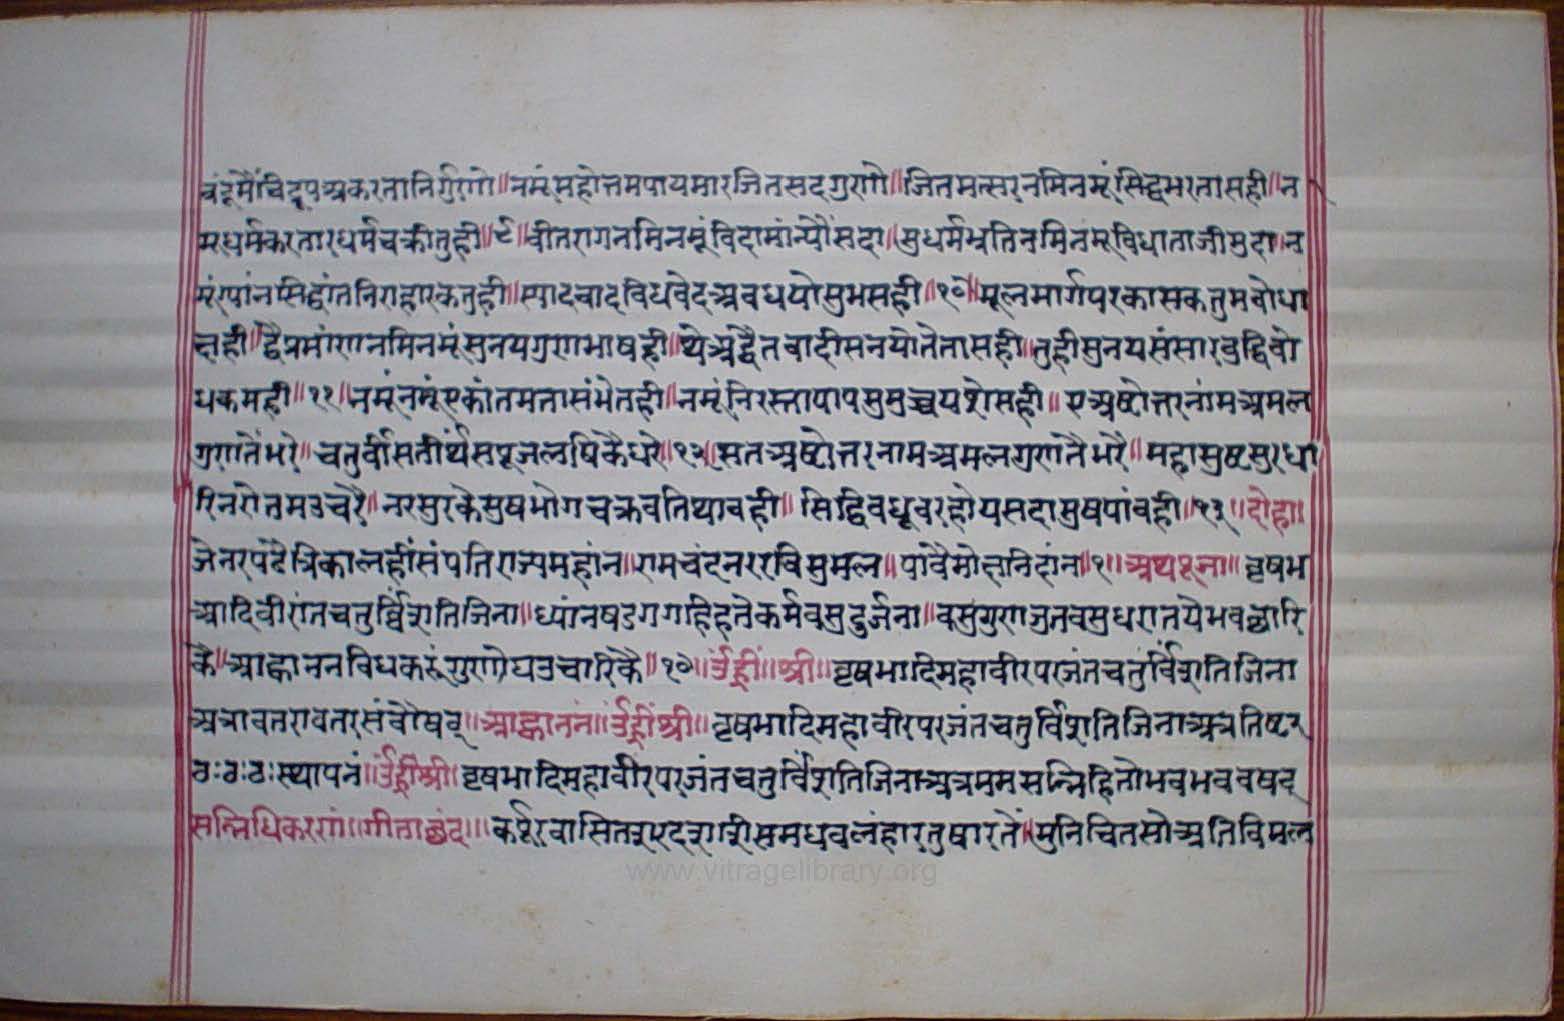 वंदूमैंचिद्रूपअकरतानिर्गुरणो॥नमूंमहोत्तमपायमारजितसदगुरणो॥जितमत्सरनमिनमूंसिद्धभरतासही॥न
मूधर्मकरतारधर्मचक्रीतुही॥९॥वीतरागनमिनमूंविदामांन्यौंसदा॥सुधर्मभ्रतिनमिनमूविधाताजीमुदा॥न
मूंरपांनसिद्धांतनिराहारकेतुही॥स्यादवादविदवेदअवधयोसुभसही॥१०॥मूलमार्गपरकासकतुमबोधा
लही॥द्वैप्रमांणनमिनमूंसुनयगुणभाषही॥येअद्वैतवादीसनयोतेतासही॥तुहीसुनयसंसारबुद्धिबो
धकमही॥११॥नमूंनमूंएकांतमतासंमेतही॥नमूंनिरस्तापापसुमुच्चयशेसही॥एअष्टोत्तरनांमअमल
गुणतैंभरे॥चतुर्वीसतीर्थेसपूजलषिकैधरे॥१२॥सतअष्टोत्तरनामअमलगुणतैभरै॥महासुष्टसुरधा
रिनरोतमउचरै॥नरसुरकेसुषभोगचक्रवतिथावही॥सिद्धिवधूवरहोयसदासुषपांवही॥१३॥दोहा॥
जेनरपढैत्रिकालहींसंपतिराज्यमहांन॥रामचंदनररविसुमल॥पावैमोक्षनिदांन॥१॥अथपूजा॥वृषभ
आदिवीरांतचतुर्विंशतिजिना॥ध्यांनषडगगहिहतेकर्मवसुदुर्जना॥वसुगुणजुतवसुधरातयेभवछारि
कै॥आह्वाननविधकरूंगुणोघउचारिकै॥१०॥उंह्रीं॥श्री॥वृषभादिमहावीरपरजंतचतुर्विंशतिजिना
अत्रावतरावतारसंवौषट्॥आह्वाननं॥उंह्रींश्री॥वृषभादिमहावीरपरजंतचतुर्विंशतिजिनाअत्रतिष्ट२
ठःठःठःस्थापनं॥उंह्रींश्री॥वृषभादिमहावीरपरजंतचतुर्विंशतिजिनाअत्रममसन्निहितोभवभववषट्
सन्निधिकरणं॥गीताछंद॥कर्पूरवासितशरदशशीसमधवलंहारतुषारतें॥मुनिचितसोअतिविमल
www.vitragelibrary.org